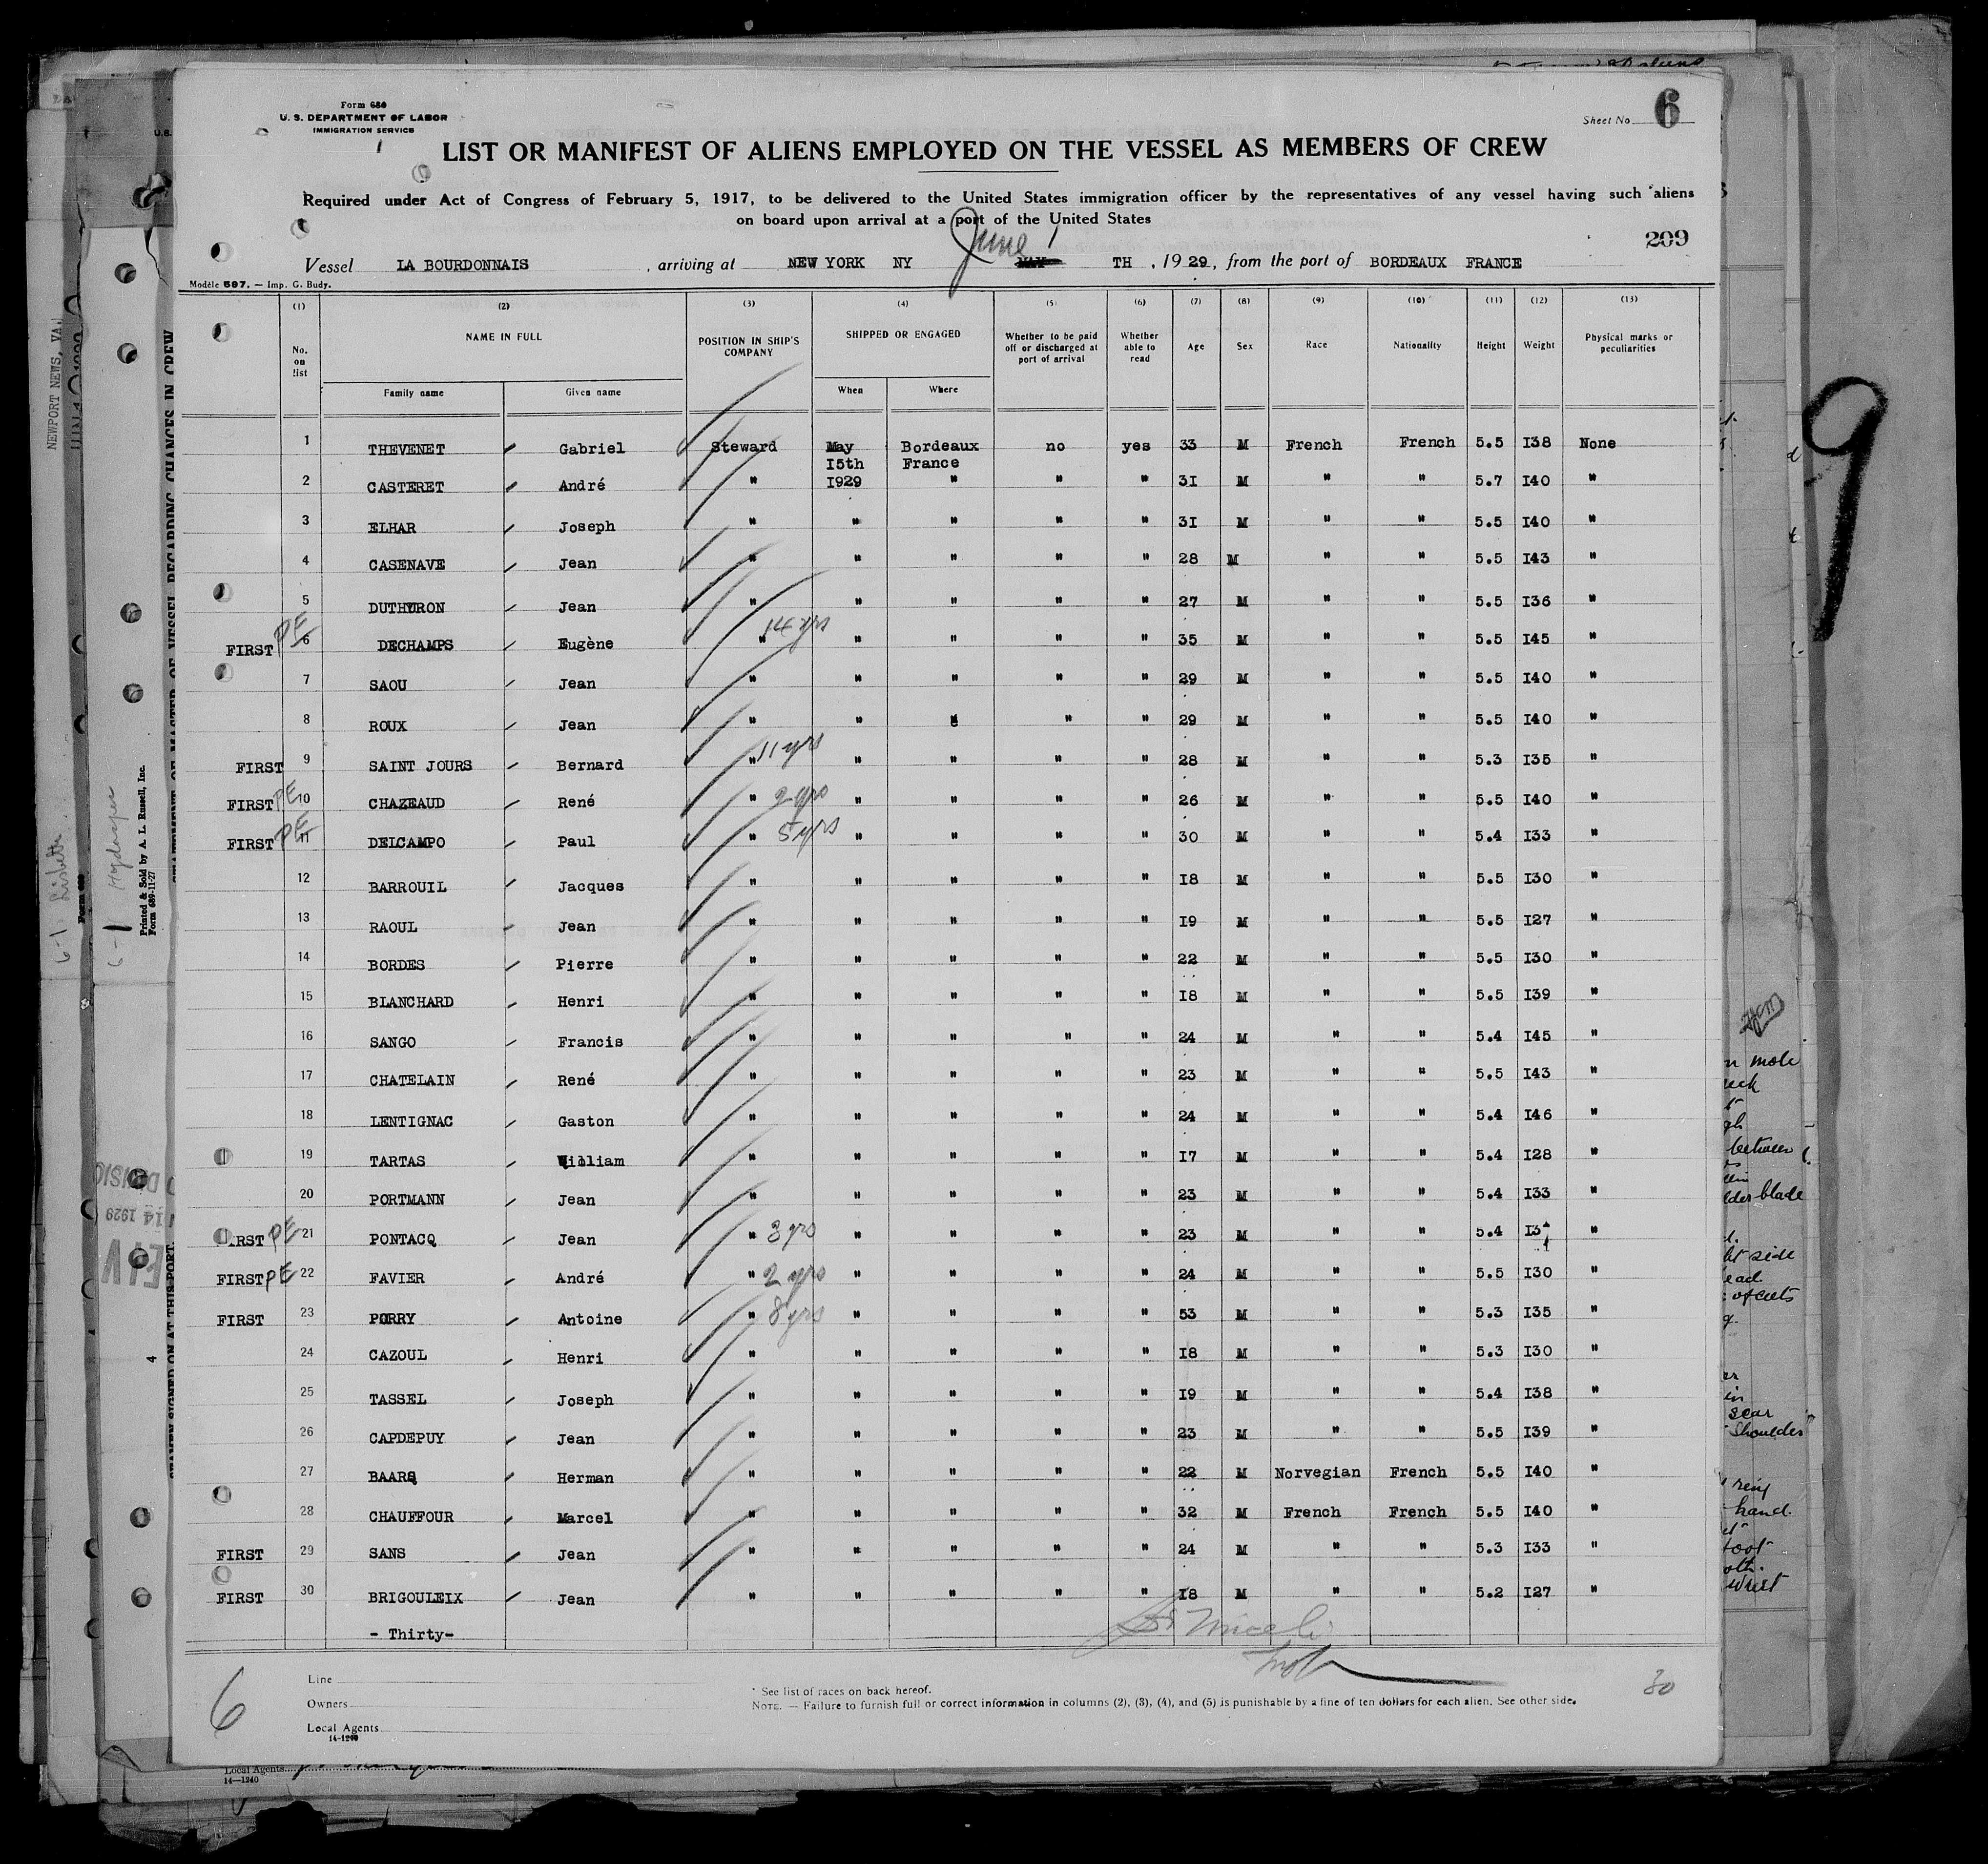 Form 680
U. S. DEPARTMENT OF LABOR
IMMIGRATION SERVICE
Sheet No. 6
LIST OR MANIFEST OF ALIENS EMPLOYED ON THE VESSEL AS MEMBERS OF CREW
Required under Act of Congress of February 5, 1917, to be delivered to the United States immigration officer by the representatives of any vessel having such aliens
on board upon arrival at a port of the United States
209
June 1
Vessel LA BOURDONNAIS , arriving at NEW YORK NY MAY TH , 1929, from the port of BORDEAUX FRANCE
Modèle 597. — Imp. G. Budy.
(1) (2) (3) (4) (5) (6) (7) (8) (9) (10) (11) (12) (13)
No. on list NAME IN FULL POSITION IN SHIP'S COMPANY SHIPPED OR ENGAGED Whether to be paid off or discharged at port of arrival Whether able to read Age Sex Race Nationality Height Weight Physical marks or peculiarities
Family name Given name When Where
1 THEVENET Gabriel Steward May Bordeaux no yes 33 M French French 5.5 I38 None
15th France
2 CASTERET André " 1929 " " " 3I M " " 5.7 I40 "
3 ELHAR Joseph " " " " " 3I M " " 5.5 I40 "
4 CASENAVE Jean " " " " " 28 M " " 5.5 I43 "
5 DUTHURON Jean " " " " " 27 M " " 5.5 I36 "
FIRST PE 6 DECHAMPS Eugène " 14 yrs " " " " 35 M " " 5.5 I45 "
7 SAOU Jean " " " " " 29 M " " 5.5 I40 "
8 ROUX Jean " " " " " 29 M " " 5.5 I40 "
FIRST 9 SAINT JOURS Bernard " 11 yrs " " " " 28 M " " 5.3 I35 "
FIRST PE 10 CHAZEAUD René " 2 yrs " " " " 26 M " " 5.5 I40 "
FIRST PE 11 DELCAMPO Paul " 5 yrs " " " " 30 M " " 5.4 I33 "
12 BARROUIL Jacques " " " " " I8 M " " 5.5 I30 "
13 RAOUL Jean " " " " " I9 M " " 5.5 I27 "
14 BORDES Pierre " " " " " 22 M " " 5.5 I30 "
15 BLANCHARD Henri " " " " " I8 M " " 5.5 I39 "
16 SANGO Francis " " " " " 24 M " " 5.4 I45 "
17 CHATELAIN René " " " " " 23 M " " 5.5 I43 "
18 LENTIGNAC Gaston " " " " " 24 M " " 5.4 I46 "
19 TARTAS William " " " " " I7 M " " 5.4 I28 "
20 PORTMANN Jean " " " " " 23 M " " 5.4 I33 "
FIRST PE 21 PONTACQ Jean " 3 yrs " " " " 23 M " " 5.4 "
FIRST PE 22 FAVIER André " 2 yrs " " " " 24 M " " 5.5 I30 "
FIRST 23 PORRY Antoine " 8 yrs " " " " 53 M " " 5.3 I35 "
24 CAZOUL Henri " " " " " I8 M " " 5.3 I30 "
25 TASSEL Joseph " " " " " I9 M " " 5.4 I38 "
26 CAPDEPUY Jean " " " " " 23 M " " 5.5 I39 "
27 BAARS Herman " " " " " 22 M Norvegian French 5.5 I40 "
28 CHAUFFOUR Marcel " " " " " 32 M French French 5.5 I40 "
FIRST 29 SANS Jean " " " " " 24 M " " 5.3 I33 "
FIRST 30 BRIGOULEIX Jean " " " " " I8 M " " 5.2 I27 "
- Thirty-
6
30
Line
Owners
Local Agents
14-1240
* See list of races on back hereof.
NOTE. — Failure to furnish full or correct information in columns (2), (3), (4), and (5) is punishable by a fine of ten dollars for each alien. See other side.
Local Agents
14—1240
NEWPORT NEWS, VA.
Printed & Sold by A. L. Russell, Inc.
Form 689-11-27
STATEMENT OF MASTER OF VESSEL REGARDING CHANGES IN CREW
4
9
mole
between
blade
side
scar
shoulder
ring
hand
foot
wrist